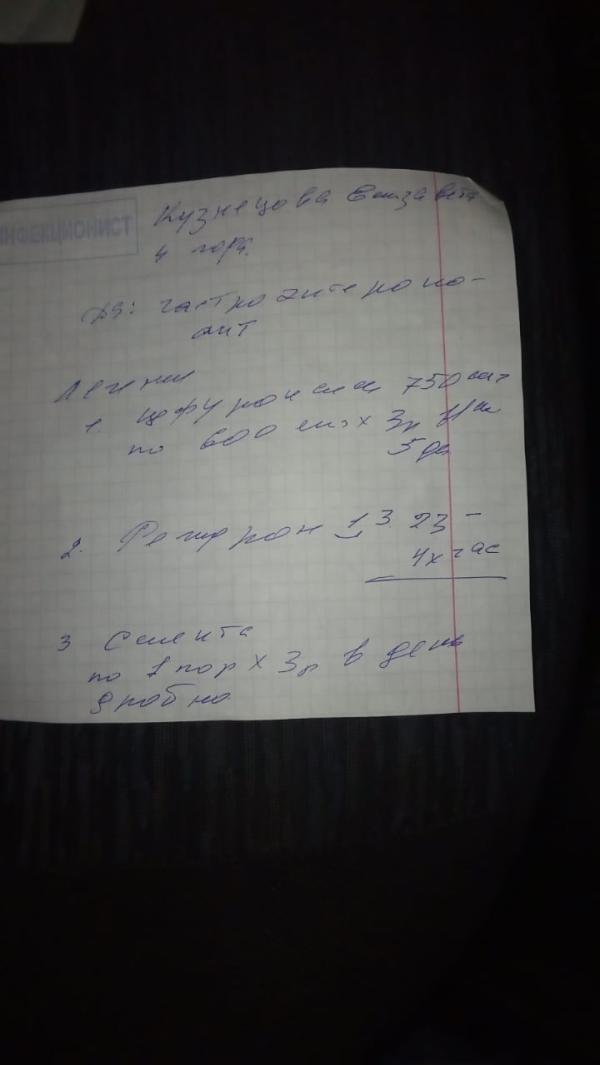 ИНФЕКЦИОНИСТ
Кузнецова Елизавета
4 года.
DS: гастроэнтероко-
лит
Лечение
1. 750 мг
по 600 мг х 3р
5 дн
2. 1 3. 23 -
4х час
3 Смекта
по 1 пор х 3р в день
дробно